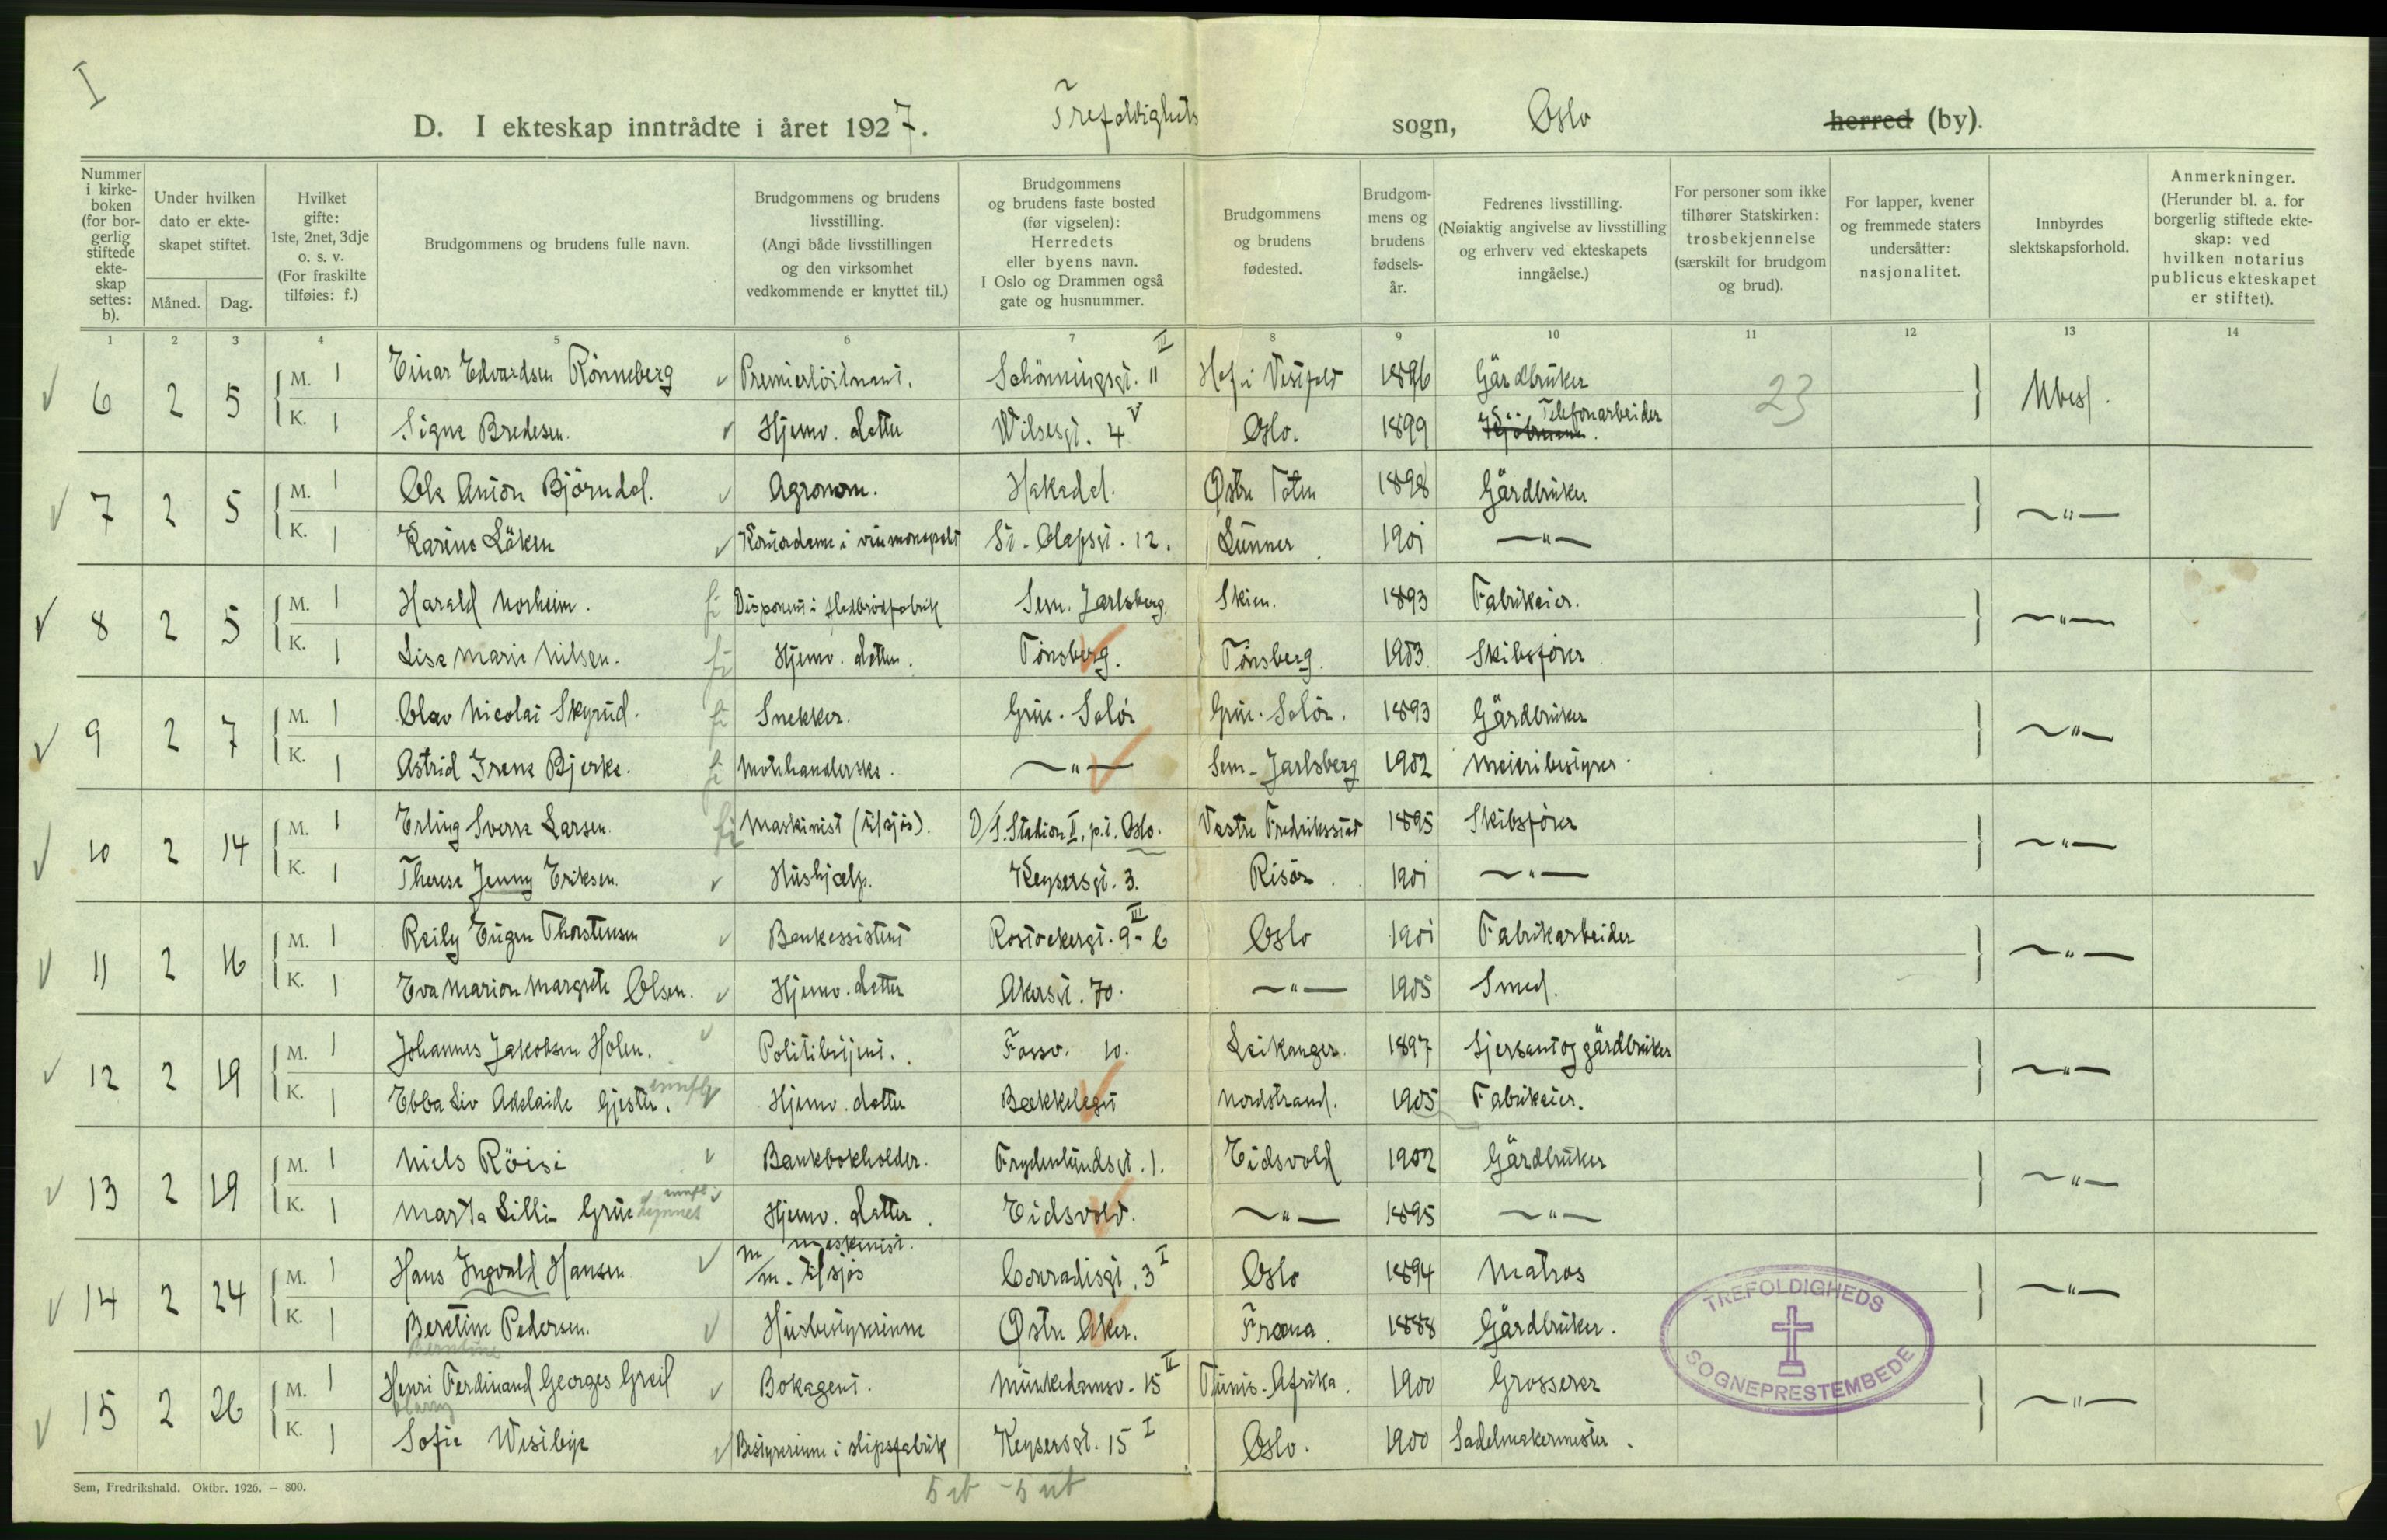 I
D. I ekteskap inntrådte i året 1927. Trefoldighets sogn, Oslo herred (by).
Nummer i kirkeboken (for borgerlig stiftede ekteskap settes: b).
Under hvilken dato er ekteskapet stiftet.
Måned. Dag.
Hvilket gifte: 1ste, 2net, 3dje o. s. v. (For fraskilte tilføies: f.)
Brudgommens og brudens fulle navn.
Brudgommens og brudens livsstilling. (Angi både livsstillingen og den virksomhet vedkommende er knyttet til.)
Brudgommens og brudens faste bosted (før vigselen): Herredets eller byens navn. I Oslo og Drammen også gate og husnummer.
Brudgommens og brudens fødested.
Brudgommens og brudens fødselsår.
Fedrenes livsstilling. (Nøiaktig angivelse av livsstilling og erhverv ved ekteskapets inngåelse.)
For personer som ikke tilhører Statskirken: trosbekjennelse (særskilt for brudgom og brud).
For lapper, kvener og fremmede staters undersåtter: nasjonalitet.
Innbyrdes slektskapsforhold.
Anmerkninger. (Herunder bl. a. for borgerlig stiftede ekteskap: ved hvilken notarius publicus ekteskapet er stiftet).
1 2 3 4 5 6 7 8 9 10 11 12 13 14
6 2 5 M. 1 Einar Edvardsen Rönneberg Premierlöitnant. Schönningsgt. 11 III Hof i Vestfold 1896 Gårdbruker 23 Ubesl.
K. 1 Signe Bredesen. Hjemv. datter Wilsesgt. 4 V Oslo. 1899 Telefonarbeider
7 2 5 M. 1 Ole Anton Björndal. Agronom. Hakadal. Østre Toten 1898 Gårdbruker —"—
K. 1 Karine Låken Kontordame i vinmonopolet St. Olafsgt. 12. Lunner. 1901 —"—
8 2 5 M. 1 Harald Norheim. Disponent i flatbrödfabrik Sem. Jarlsberg. Skien. 1893 Fabrikeier. —"—
K. 1 Lisa Marie Nilsen. Hjemv. datter. Tönsberg. Tönsberg. 1903 Skibsförer
9 2 7 M. 1 Olav Nicolai Skyrud. Snekker. Grue. Solör Grue. Solör. 1893 Gårdbruker —"—
K. 1 Astrid Irene Bjerke. Motehandlerske. —"— Sem. Jarlsberg 1902 Meieribestyrer.
10 2 14 M. 1 Erling Sverre Larsen. Maskinist (tilsjös). D/S. Station I, p.t. Oslo. Vestre Fredrikstad 1895 Skibsförer —"—
K. 1 Therese Jenny Eriksen. Hushjælp. Keysersgt. 3. Risör. 1901 —"—
11 2 16 M. 1 Reily Eugen Thorstensen Bankassistent Rostockergt. 9 III - 6 Oslo 1901 Fabrikarbeider —"—
K. 1 Eva Marion Margrete Olsen. Hjemv. datter Akersgt. 70. —"— 1905 Smed.
12 2 19 M. 1 Johannes Jakobsen Holen. Politibetjent. Fossv. 10. Leikanger. 1897 Sjersant og gårdbruker —"—
K. 1 Ebba Liv Adelaide Gjestr. Hjemv. datter Bækkelaget Nordstrand. 1905 Fabrikeier.
13 2 19 M. 1 Niels Röisi Bankbokholder. Frydenlundsgt. 1. Eidsvold 1902 Gårdbruker —"—
K. 1 Marta Lilli Grue Hjemv. datter. Eidsvold. —"— 1895 —"—
14 2 24 M. 1 Hans Ingvald Hansen maskinist. m/m. tilsjös Conradisgt. 3 I Oslo 1894 Matros —"—
K. 1 Beretine Pedersen. Husbestyrerinne Østre Aker. Fræna. 1888 Gårdbruker.
Berntine
15 2 26 M. 1 Henri Ferdinand Georges Greil Bokagent. Munkedamsv. 15 II Tunis. Afrika. 1900 Grosserer —"—
Harry
K. 1 Sofie Westbye Bestyrerinne i slipsfabrik Keysersgt. 15 I Oslo. 1900 Sadelmakermester.
TREFOLDIGHEDS SOGNEPRESTEMBEDE
Sem, Fredrikshald. Oktbr. 1926. — 800.
5 ib - 5 ub